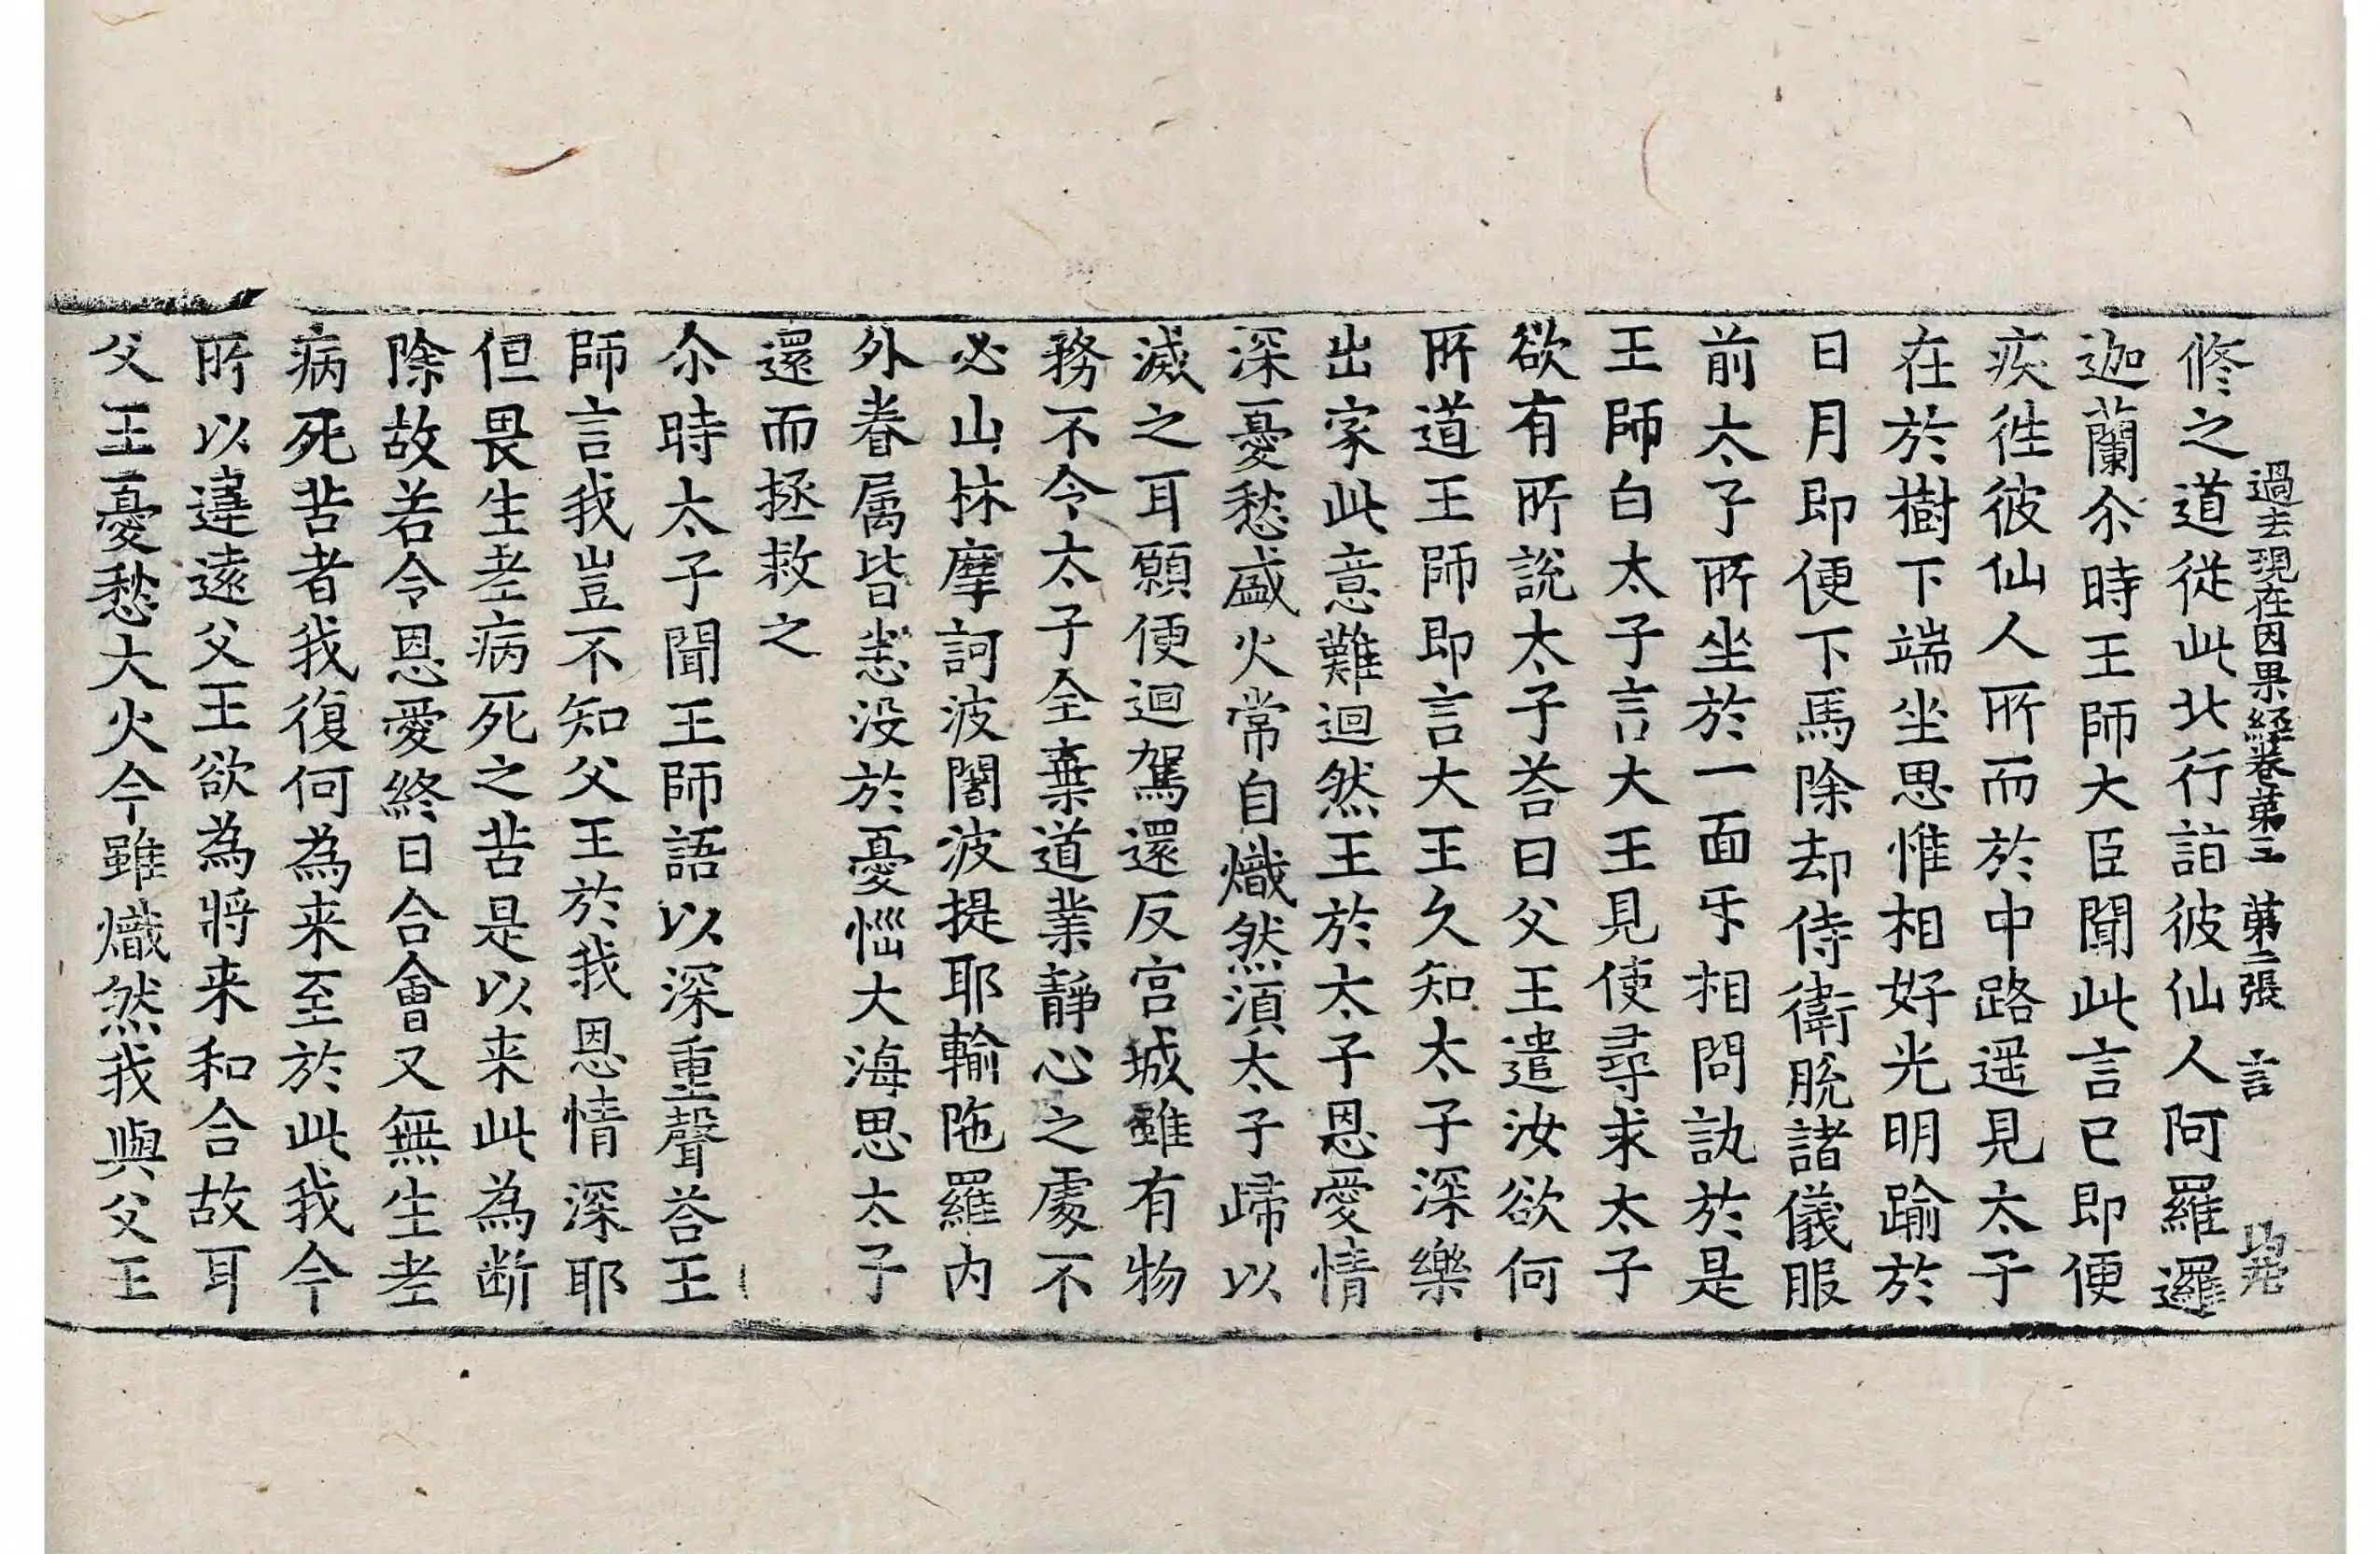 過去現在因果經卷第三 第二張 言
修之道從此北行詣彼仙人阿羅邏
迦蘭尒時王師大臣聞此言已即便
疾徃彼仙人所而於中路遥見太子
在於樹下端坐思惟相好光明踰於
日月即便下馬除却侍衛脱諸儀服
前太子所坐於一面㸦相問訊於是
王師白太子言大王見使尋求太子
欲有所說太子荅曰父王遣汝欲何
所道王師即言大王久知太子深樂
出家此意難迴然王於太子恩愛情
深憂愁盛火常自熾然湏太子歸以
滅之耳願便迴駕還反宮城雖有物
務不令太子全棄道業靜心之處不
必山林摩訶波闍波提耶輸陁羅内
外眷属皆悉没於憂惱大海思太子
還而拯救之
尒時太子聞王師語以深重聲荅王
師言我豈不知父王於我恩情深耶
但畏生老病死之苦是以来此為断
除故若令恩愛終日合會又無生老
病死苦者我復何為来至於此我今
所以違遠父王欲為將来和合故耳
父王憂愁大火今雖熾然我與父王